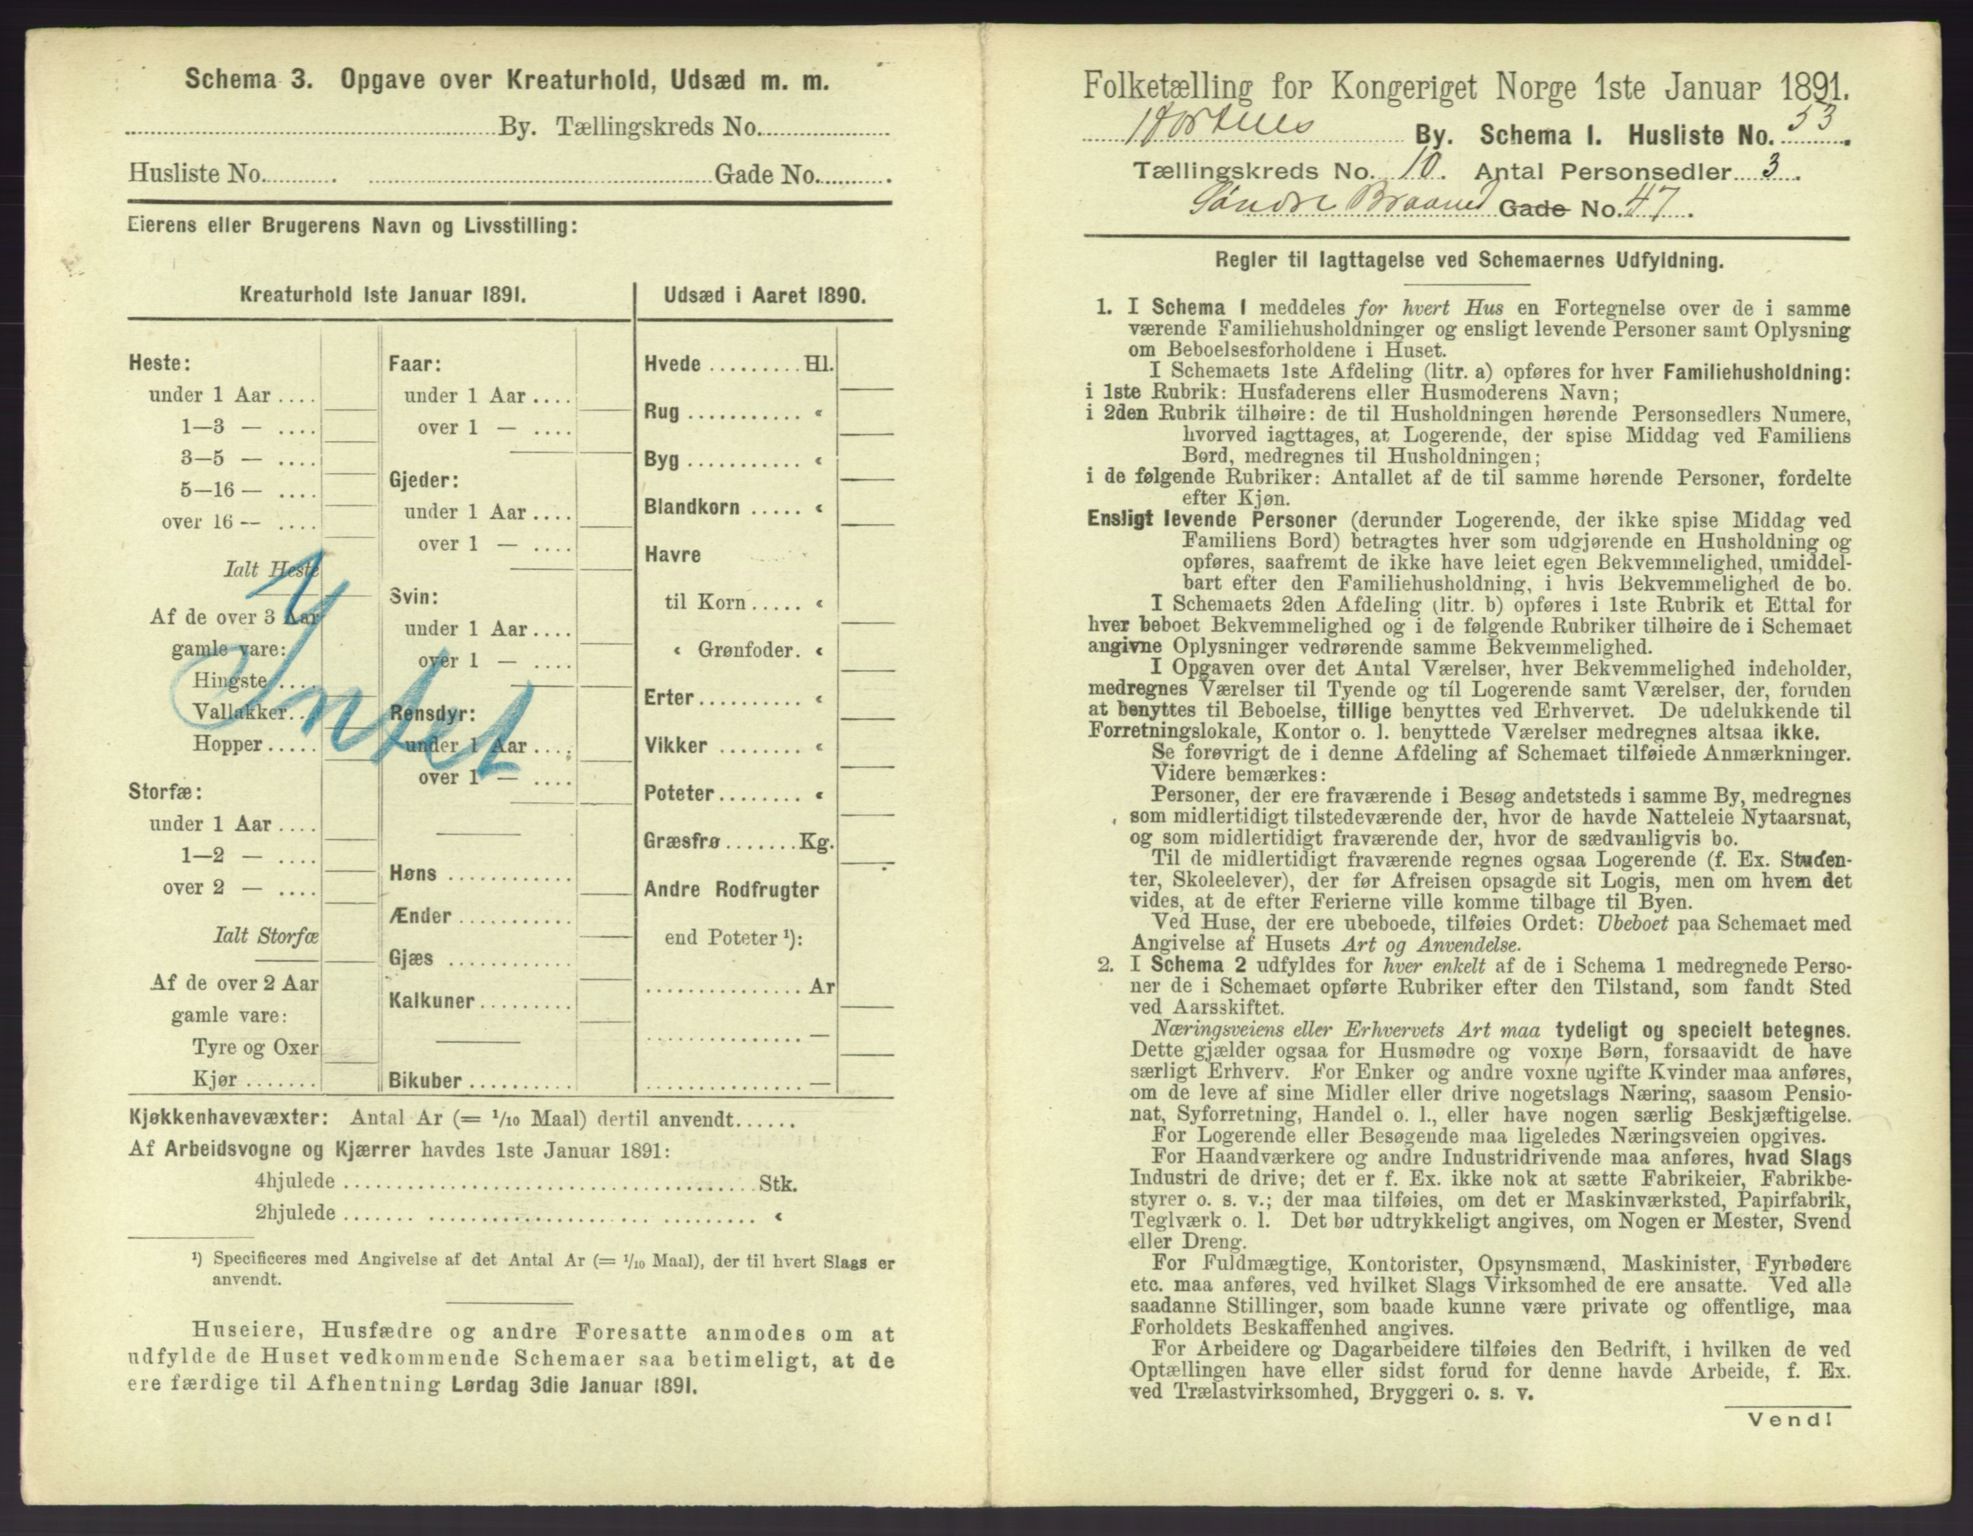 Schema 3. Opgave over Kreaturhold, Udsæd m. m.
By. Tællingskreds No.
Husliste No. Gade No.
Eierens eller Brugerens Navn og Livsstilling:
Kreaturhold 1ste Januar 1891.
Heste:
under 1 Aar ....
1—3 — ....
3—5 — ....
5—16 — ....
over 16 — ....
Ialt Heste
Af de over 3 Aar
gamle vare:
Hingste ....
Vallakker ..
Hopper .....
Storfæ:
under 1 Aar ....
1—2 — ....
over 2 — ....
Ialt Storfæ
Af de over 2 Aar
gamle vare:
Tyre og Oxer
Kjør .......
Faar:
under 1 Aar ....
over 1 — ....
Gjeder:
under 1 Aar ....
over 1 — ....
Svin:
under 1 Aar ....
over 1 — ....
Rensdyr:
under 1 Aar ....
over 1 — ....
Høns ............
Ænder ...........
Gjæs ............
Kalkuner .........
Bikuber ..........
Intet
Udsæd i Aaret 1890.
Hvede ......... Hl.
Rug ........... «
Byg ........... «
Blandkorn ..... «
Havre
til Korn ..... «
« Grønfoder. «
Erter ......... «
Vikker ........ «
Poteter ........ «
Græsfrø ....... Kg.
Andre Rodfrugter
end Poteter ¹):
............... Ar
............... —
............... —
Kjøkkenhavevæxter: Antal Ar (= 1/10 Maal) dertil anvendt ......
Af Arbeidsvogne og Kjærrer havdes 1ste Januar 1891:
4hjulede ........ Stk.
2hjulede ........ «
¹) Specificeres med Angivelse af det Antal Ar (= 1/10 Maal), der til hvert Slags er
anvendt.
Huseiere, Husfædre og andre Foresatte anmodes om at
udfylde de Huset vedkommende Schemaer saa betimeligt, at de
ere færdige til Afhentning Lørdag 3die Januar 1891.
Folketælling for Kongeriget Norge 1ste Januar 1891.
Hortens By. Schema I. Husliste No. 53.
Tællingskreds No. 10. Antal Personsedler 3.
Søndre Braaned Gade No. 47.
Regler til Iagttagelse ved Schemaernes Udfyldning.
1. I Schema 1 meddeles for hvert Hus en Fortegnelse over de i samme
værende Familiehusholdninger og ensligt levende Personer samt Oplysning
om Beboelsesforholdene i Huset.
I Schemaets 1ste Afdeling (litr. a) opføres for hver Familiehusholdning:
i 1ste Rubrik: Husfaderens eller Husmoderens Navn;
i 2den Rubrik tilhøire: de til Husholdningen hørende Personsedlers Numere,
hvorved iagttages, at Logerende, der spise Middag ved Familiens
Bord, medregnes til Husholdningen;
i de følgende Rubriker: Antallet af de til samme hørende Personer, fordelte
efter Kjøn.
Ensligt levende Personer (derunder Logerende, der ikke spise Middag ved
Familiens Bord) betragtes hver som udgjørende en Husholdning og
opføres, saafremt de ikke have leiet egen Bekvemmelighed, umiddel-
bart efter den Familiehusholdning, i hvis Bekvemmelighed de bo.
I Schemaets 2den Afdeling (litr. b) opføres i 1ste Rubrik et Ettal for
hver beboet Bekvemmelighed og i de følgende Rubriker tilhøire de i Schemaet
angivne Oplysninger vedrørende samme Bekvemmelighed.
I Opgaven over det Antal Værelser, hver Bekvemmelighed indeholder,
medregnes Værelser til Tyende og til Logerende samt Værelser, der, foruden
at benyttes til Beboelse, tillige benyttes ved Erhvervet. De udelukkende til
Forretningslokale, Kontor o. l. benyttede Værelser medregnes altsaa ikke.
Se forøvrigt de i denne Afdeling af Schemaet tilføiede Anmærkninger.
Videre bemærkes:
Personer, der ere fraværende i Besøg andetsteds i samme By, medregnes
som midlertidigt tilstedeværende der, hvor de havde Natteleie Nytaarsnat,
og som midlertidigt fraværende der, hvor de sædvanligvis bo.
Til de midlertidigt fraværende regnes ogsaa Logerende (f. Ex. Studen-
ter, Skoleelever), der før Afreisen opsagde sit Logis, men om hvem det
vides, at de efter Ferierne ville komme tilbage til Byen.
Ved Huse, der ere ubeboede, tilføies Ordet: Ubeboet paa Schemaet med
Angivelse af Husets Art og Anvendelse.
2. I Schema 2 udfyldes for hver enkelt af de i Schema 1 medregnede Perso-
ner de i Schemaet opførte Rubriker efter den Tilstand, som fandt Sted
ved Aarsskiftet.
Næringsveiens eller Erhvervets Art maa tydeligt og specielt betegnes.
Dette gjælder ogsaa for Husmødre og voxne Børn, forsaavidt de have
særligt Erhverv. For Enker og andre voxne ugifte Kvinder maa anføres,
om de leve af sine Midler eller drive nogetslags Næring, saasom Pensio-
nat, Syforretning, Handel o. l., eller have nogen særlig Beskjæftigelse.
For Logerende eller Besøgende maa ligeledes Næringsveien opgives.
For Haandværkere og andre Industridrivende maa anføres, hvad Slags
Industri de drive; det er f. Ex. ikke nok at sætte Fabrikeier, Fabrikbe-
styrer o. s. v.; der maa tilføies, om det er Maskinværksted, Papirfabrik,
Teglværk o. l. Det bør udtrykkeligt angives, om Nogen er Mester, Svend
eller Dreng.
For Fuldmægtige, Kontorister, Opsynsmænd, Maskinister, Fyrbødere
etc. maa anføres, ved hvilket Slags Virksomhed de ere ansatte. Ved alle
saadanne Stillinger, som baade kunne være private og offentlige, maa
Forholdets Beskaffenhed angives.
For Arbeidere og Dagarbeidere tilføies den Bedrift, i hvilken de ved
Optællingen have eller sidst forud for denne havde Arbeide, f. Ex.
ved Trælastvirksomhed, Bryggeri o. s. v.
Vend!